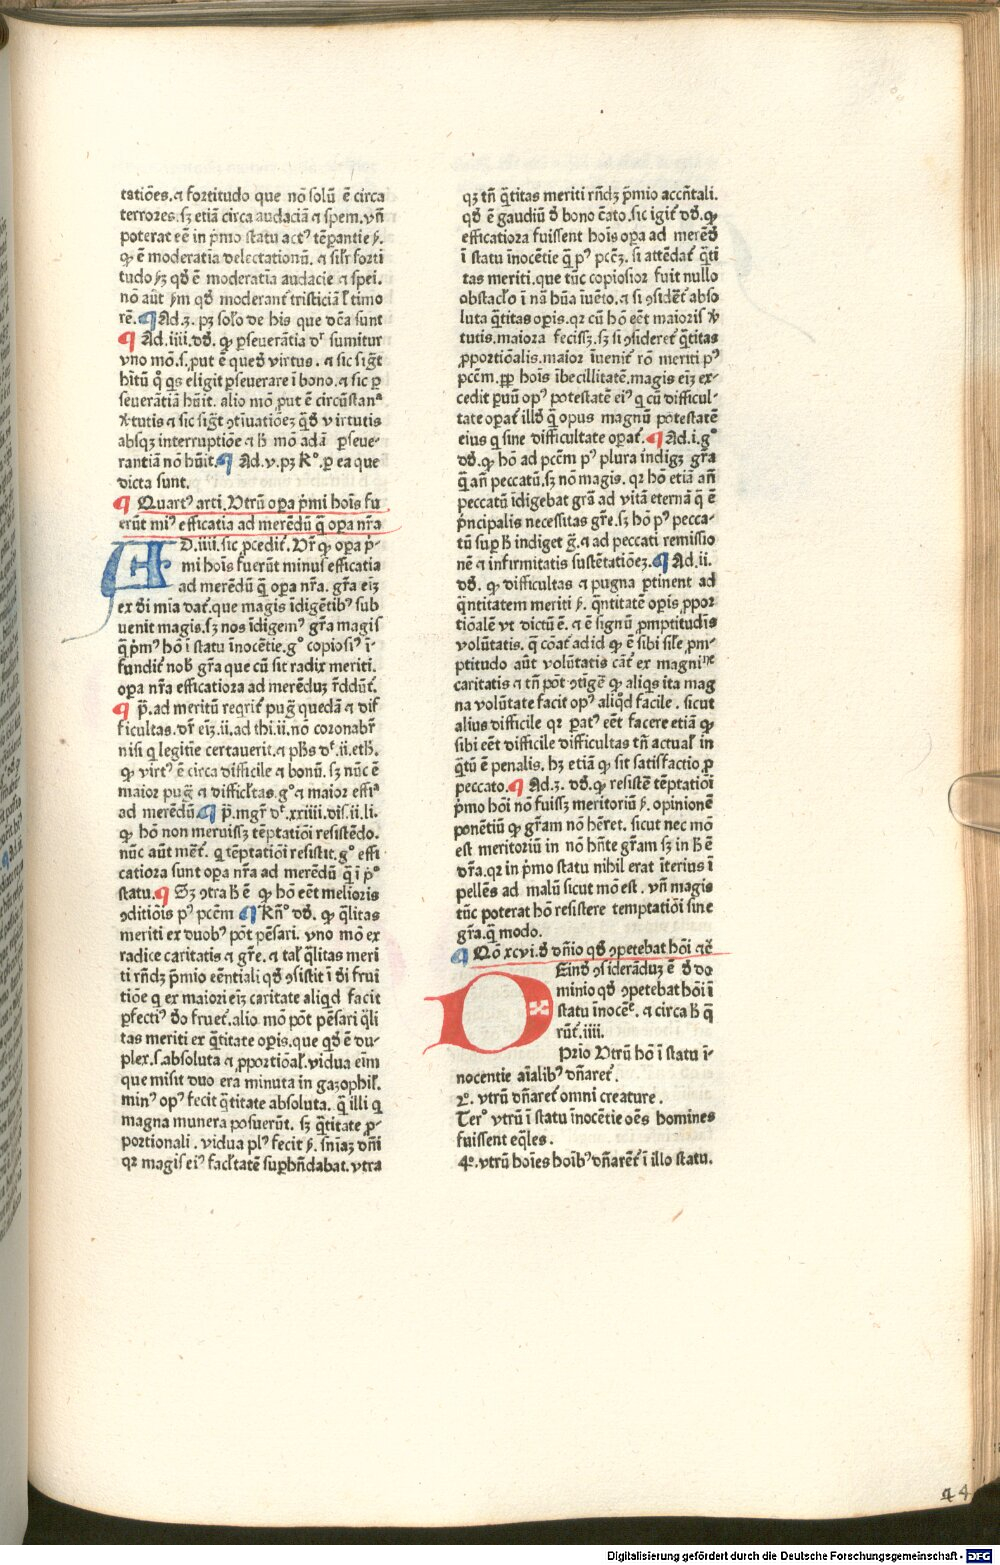 tatiões.⁊ fortitudo que nõ solũ ē circa
terrores.sꝫ etiã circa audaciã ⁊ spem.vñ
poterat eē in p̃mo statu actꝰ tẽpantie ẜm.
ꝙ ē moderatia delectationũ. ⁊ silr̃ forti
tudo ẜꝫ qď ē moderatia audacie ⁊ spei.
nõ aũt ẜm qď moderant̃ tristiciã ł timo
rē. ¶ Ad.3. pꝫ solo᷒ de his que dc̃a sunt
¶ Ad.iiii.dď. ꝙ ꝑseuerãtia dr̃ sumitur
vno mõ.s.put ē quedã virtus. ⁊ sic sig̃t
hĩtũ q̊ qs eligit ꝑseuerare ĩ bono.⁊ sic ꝑ
seuerãtiã hũit. alio mõ put ē circũstanᵃ
v̾tutis ⁊ sic sig̃t ꝯtinuatiõeꝫ q̃dã virtutis
absqꝫ interruptiõe ⁊ h̾ mõ adã ꝑseue-
rantiã nõ hũit. ¶ Ad.v.pꝫ Rº.ꝑ ea que
dicta sunt.
¶ Quartꝰ arti. Vtrũ oꝑa p̃mi hoĩs fu
erũt miꝰ efficatia ad merẽdũ q̃ oꝑa nr̃a
AD.iiii.sic ꝓcedit̃. Vr̃ ꝙ oꝑa p̃-
mi hoĩs fuerũt minus efficatia
ad merẽdũ q̃ oꝑa nr̃a. gr̃a eĩꝫ
ex dĩ mĩa dat̃.que magis ĩdigẽtibꝰ sub
uenit magis.sꝫ nos ĩdigemꝰ gr̃a magis
q̃ p̃mꝰ hõ ĩ statu ĩnocẽtie.gº copiosiꝰ ĩ-
fundit̃ nob̾ gr̃a que cũ sit radix meriti.
oꝑa nr̃a efficatiora ad merẽduꝫ r̃ddũt̃.
¶ p̃.ad meritũ reqrit̃ pug̃ quedã ⁊ dif
ficultas.dr̃ eĩꝫ.ii.ad thi.ii.nõ coronabr̃
nisi q legitĩe certauerit.⁊ ph̃s dr̃.ii.eth̾.
ꝙ virtꝰ ē circa difficile ⁊ bonũ. sꝫ nũc ē
maior pug̃ ⁊ difficłtas.gº ⁊ maior effiᵃ
ad merẽdũ. ¶ p̃.mgr̃ dr̃.xxiiii.dis.ii.li.
ꝙ hõ non meruissꝫ tẽptatiõi resistẽdo.
nũc aũt meret̃. q tẽptatiõi resistit.gº effi
catiora sunt oꝑa nr̃a ad merẽdũ q̃ ĩ p̊
statu. ¶ Sꝫ ꝯtra h̾ ē ꝙ hõ eēt melioris
ꝯditiõis pꝰ pccm̃ ¶ Rñº dď. ꝙ q̃litas
meriti ex duobꝰ põt pẽsari. vno mõ ex
radice caritatis ⁊ gr̃e. ⁊ tal̾ q̃litas meri
ti rñdꝫ p̃mio eẽntiali qď ꝯsistit ĩ dĩ frui
tiõe q ex maiori eĩꝫ caritate aliqd facit
ꝑfectiꝰ dº fruet̃.alio mõ põt pẽsari q̃li
tas meriti ex q̃titate oꝑis.que qď ē du-
plex.s.absoluta ⁊ ꝓportiõal̾.vidua eĩm
que misit duo era minuta in gazophil̾.
minꝰ opꝰ fecit q̃titate absoluta. q̃ illi q
magna munera posuerũt. sꝫ q̃titate ꝓ-
portionali. vidua plꝰ fecit ẜm. sn̄iaꝫ dñi
qꝛ magis eiꝰ facłtatẽ suꝑhñdabat. vtra
qꝫ tñ q̃titas meriti rñdꝫ p̃mio accñtali.
qď ē gaudiũ d̾ bono c̾ato.sic igit̃ dď. ꝙ
efficatiora fuissent hoĩs oꝑa ad merẽdũ
ĩ statu ĩnocẽtie q̃ pꝰ pccm̃. si attẽdat̃ q̃ti
tas meriti.que tũc copiosior fuit nullo
obstacło ĩ nã hũa ĩuẽto.⁊ si ꝯsidet̃ abso
luta q̃titas oꝑis.qꝛ cũ hõ eēt maioris v̾
tutis.maiora fecissꝫ.sꝫ si ꝯsideret̃ q̃titas
ꝓportiõalis.maior ĩuenit̃ rõ meriti pꝰ
pccm̃.ꝓp̃ hoĩs ĩbecillitatẽ.magis eĩꝫ ex-
cedit puũ opꝰ potestatẽ eiꝰ q cũ difficul-
tate oꝑat̃ illď q̃ opus magnũ potestatẽ
eius q sine difficultate oꝑat̃. ¶ Ad.i.gº
dď.ꝙ hõ ad pccm̃ pꝰ plura indigꝫ gr̃a
q̃ añ peccatũ.sꝫ nõ magis. qꝛ hõ etiã añ
peccatũ ĩdigebat gr̃a ad vitã eternã q̃ ē
p̃ncipalis necessitas gr̃e. sꝫ hõ pꝰ pecca-
tũ suꝑ h̾ indiget g̃.⁊ ad peccati remissio
nẽ ⁊ infirmitatis sustẽtatiõeꝫ. ¶ Ad.ii.
dď. ꝙ difficultas ⁊ pugna ꝑtinent ad
q̃ntitatem meriti ẜm. q̃ntitatẽ oꝑis ꝓpor
tiõalẽ vt dictũ ē. ⁊ ē signũ ꝓmptitudĩs
volũtatis. q̃ cõat̃ ad id ꝙ ē sibi sile ꝓm-
ptitudo aũt volũtatis cãt̃ ex magniⁿᵉ
caritatis ⁊ tñ põt ꝯtĩgẽ ꝙ aliqs ita mag
na volũtate facit opꝰ aliqď facile . sicut
alius difficile qꝛ patꝰ eēt facere etiã ꝙ
sibi eēt difficile difficultas tñ actual̾ in
q̃tũ ē penalis. hꝫ etiã ꝙ sit satisfactio ꝓ
peccato. ¶ Ad.3. dď. ꝙ resistẽ tẽptatiõi
p̃mo hoĩ nõ fuissꝫ meritoriũ ẜm. opinionẽ
ponẽtiũ ꝙ gr̃am nõ hẽret. sicut nec mõ
est meritoriũ in nõ hñte gr̃am sꝫ in h̾ ē
dr̃a.qꝛ in p̃mo statu nihil erat ĩterius ĩ
pellẽs ad malũ sicut mõ est . vñ magis
tũc poterat hõ resistere temptatiõi sine
gr̃a.q̃ modo.
¶ Qõ xcvi.d̾ dñio qď ꝯpetebat hõi ⁊c̃
DEinď ꝯsiderãduꝫ ē d̾ do
minio qď ꝯpetebat hõi ĩ
statu ĩnocẽᵉ. ⁊ circa h̾ q̃
rũt̃.iiii.
Prio Vtrũ hõ ĩ statu ĩ-
nocentie aĩalibꝰ dñaret̃.
2º. vtrũ dñaret̃ omni creature .
Terº vtrũ ĩ statu ĩnocẽtie oẽs homines
fuissent eq̃les .
4º.vtrũ hoĩes hoĩbꝰ dñarẽt̃ ĩ illo statu.
44
Digitalisierung gefördert durch die Deutsche Forschungsgemeinschaft - DFG